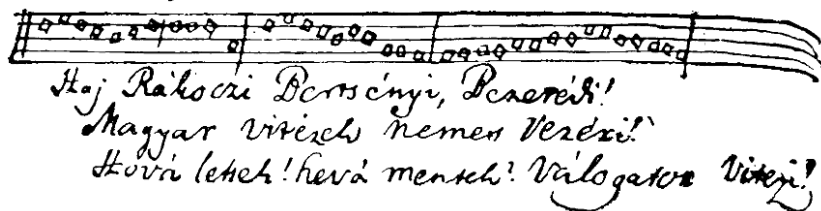 Haj Rákoczi Bersényi, Bezerédi!
Magyar vitézek nemes Vezéri!
Hová lettek! hevá mentek? Válogatot Vitezi!